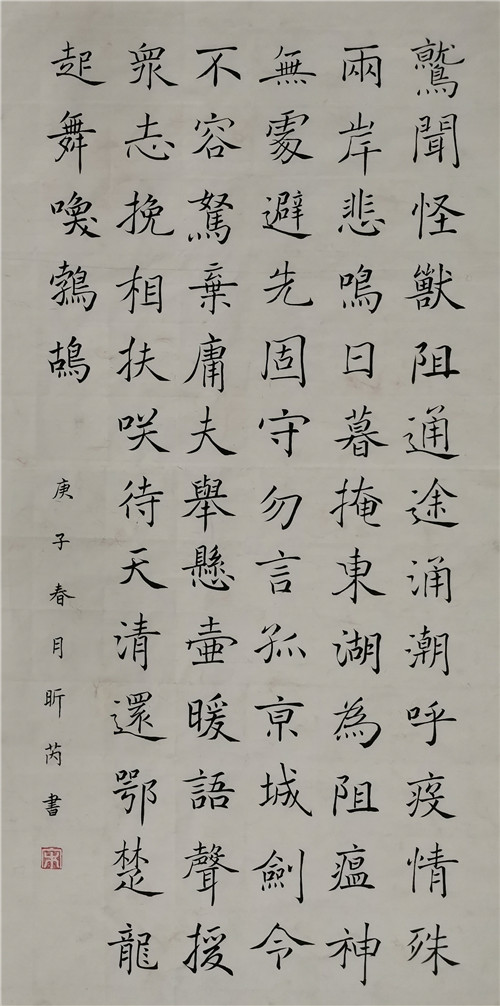 鷲聞怪獸阻通途涌潮呼疫情殊
兩岸悲鳴日暮掩東湖為阻瘟神
無處避先固守勿言孤亰城劍令
不容駑棄庸夫舉懸壺暖語聲援
眾志挽相扶咲待天清還鄂楚龍
起舞喚鵓鴣
庚子春月昕芮書